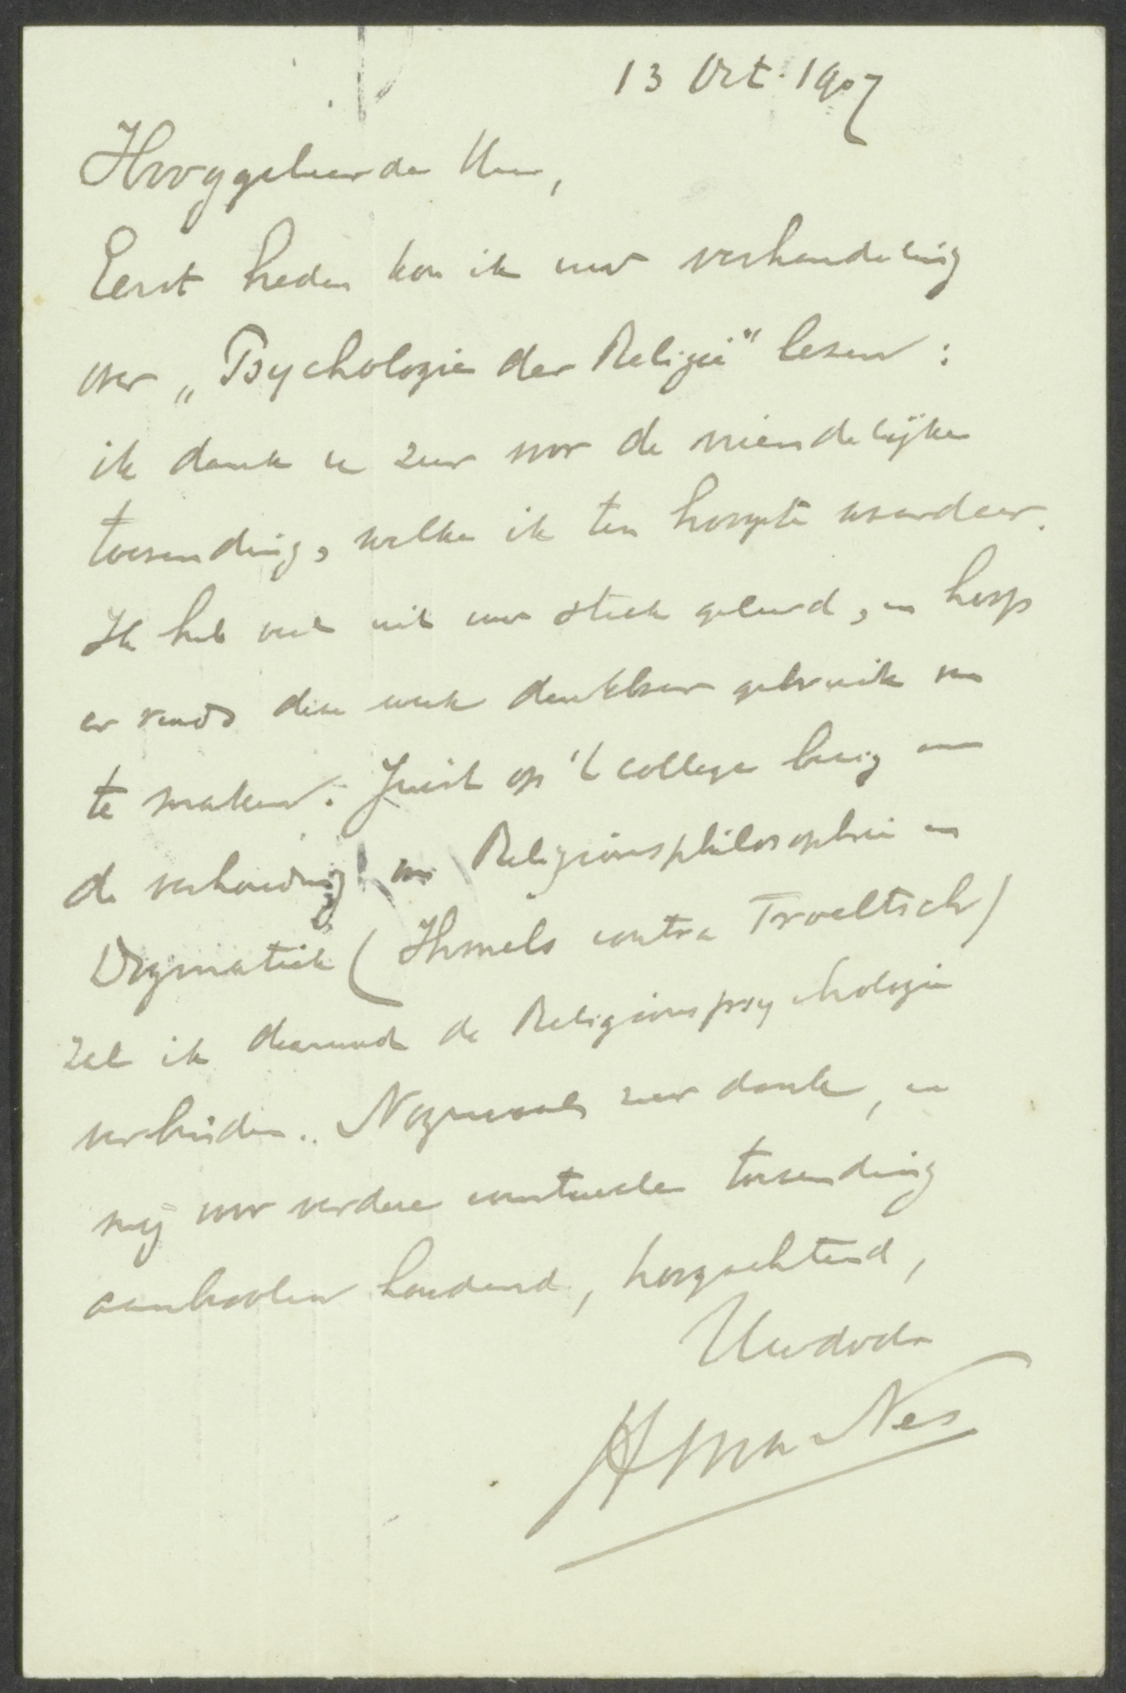 13 Oct. 1907
Hooggeleerde Heer,
Eerst heden kon ik uw verhandeling
over „Psychologie der Religie" lezen:
ik dank u zeer voor de vriendelijke
toezending, welke ik ten hoogste waardeer.
Ik heb veel uit uw stuk geleerd, en hoop
er reeds deze week dankbaar gebruik van
te maken. Juist op 't college bezig met
de verhouding van Religionsphilosophie en
Dogmatiek (Ihmels contra Troeltsch)
zal ik daarmede de Religionspsychologie
verbinden. Nogmaals zeer dank, en
mij voor verdere eventueele toezending
aanbevolen houdend, hoogachtend,
Uwdvdr
H M van Nes